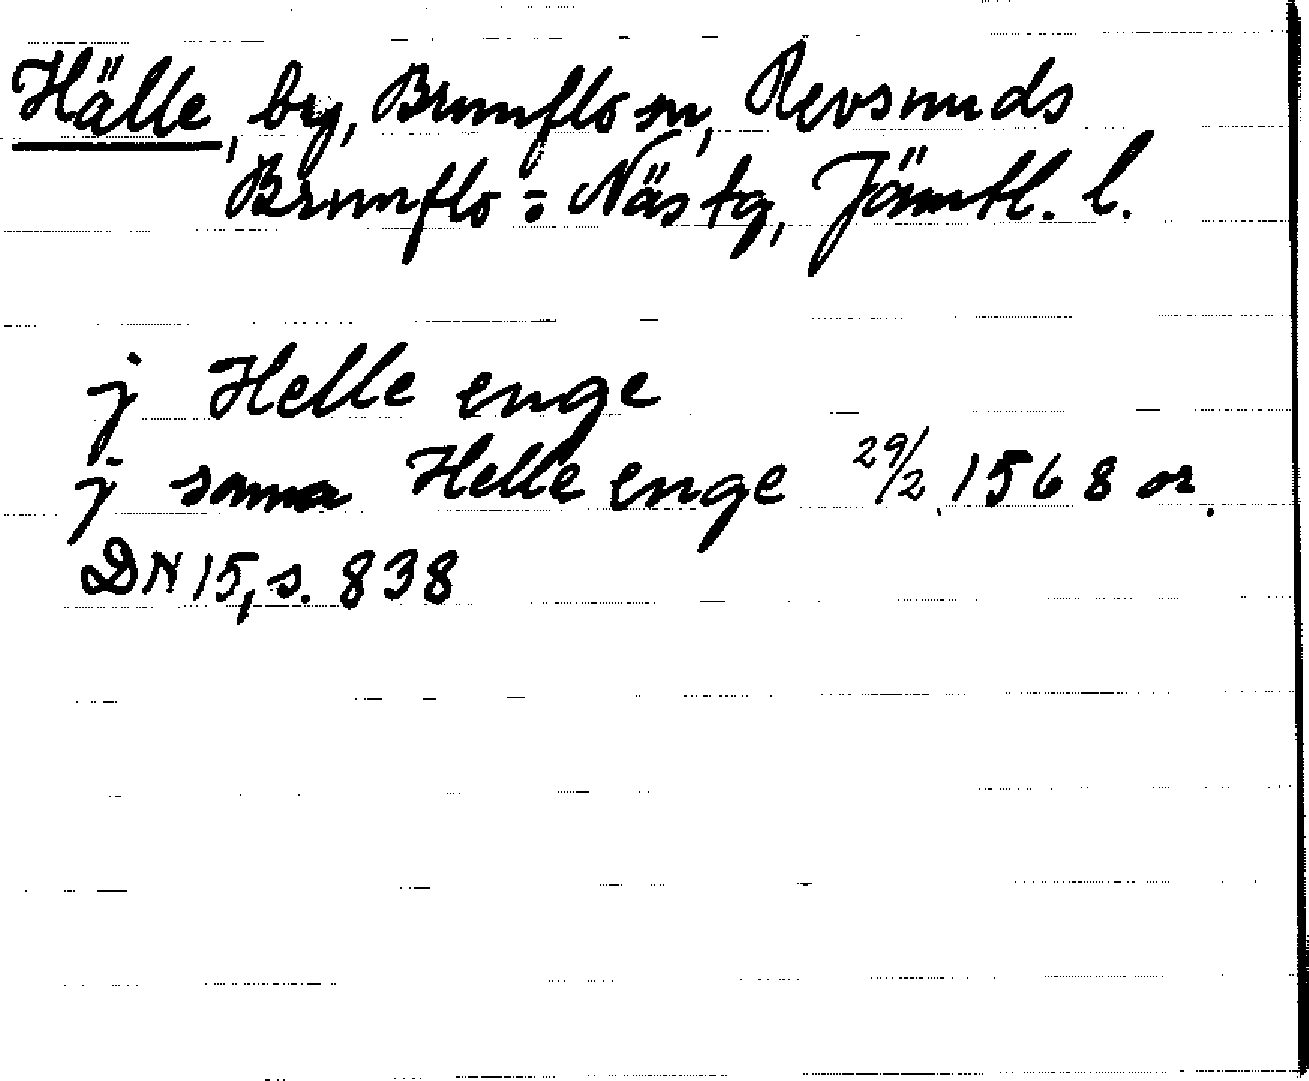 Hälle, by, Brunflo sn, Revsunds
Brunflo = Näs tg, Jämtl. l.
j Helle enge
j sama Helle enge 29/2 1568 or.
DN 15, s. 838